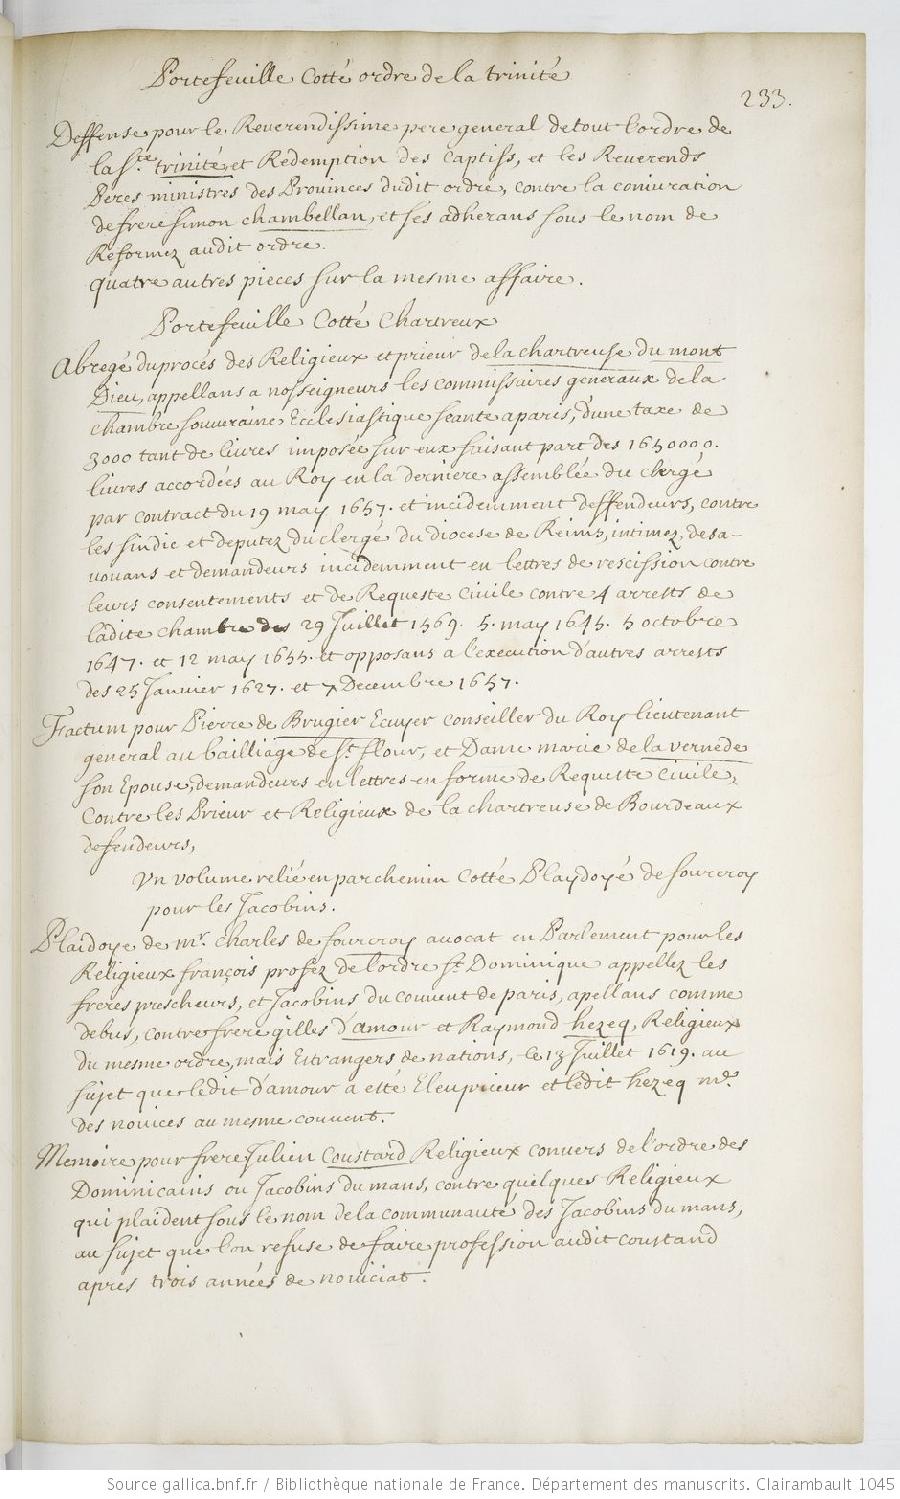 Portefeuille Cotté ordre de la trinité
233.
Deffense pour le Reverendissime pere general de tout l'ordre de
la Ste. trinité et Redemption des Captifs, et les Reverends
Peres ministres des Provinces dudit ordre, contre la coniuration
de frere simon chambellan, et ses adherans sous le nom de
Reformez audit ordre.
quatre autres pieces sur la mesme affaire.
Portefeuille Cotté Chartreux
Abregé du procés des Religieux et prieur de la chartreuse du mont
Dieu, appellans a nosseigneurs les commissaires generaux de la
chambre souueraine Ecclesiastique seante a paris, d'une taxe de
3000 tant de liures imposée sur eux faisant part des 1650000.
liures accordées au Roy en la derniere assemblée du clergé
par contract du 19 may 1657. et incidemment deffendeurs, contre
les sindic et deputez du clergé du diocese de Reims, intimez, desa-
uouans et demandeurs incidemment en lettres de rescission contre
leurs consentements et de Requeste Ciuile contre 4 arrests de
ladite chambre des 29 Juillet 1569. 5. may 1645. 5 octobre
1647. et 12 may 1655. et opposans a l'execution d'autres arrests
des 25 Januier 1627. et 7 Decembre 1657.
Factum pour Pierre de Brugier Ecuyer conseiller du Roy lieutenant
general au bailliage de St. flour, et Dame marie de la vernede
son Epouse, demandeurs en lettres en forme de Requeste Ciuile,
Contre les Prieur et Religieux de la chartreuse de Bourdeaux
defendeurs,
Vn volume relié en parchemin Cotté Playdoyé de fourcroy
pour les Jacobins.
Plaidoye de mr. charles de fourcroy auocat en Parlement pour les
Religieux françois profez de l'ordre St. Dominique appellez les
freres prescheurs, et Jacobins du couuent de paris, apellans comme
debus, contre frere gilles d'amour et Raymond hezeq, Religieux
du mesme ordre, mais Etrangers de nations, ce 13 Juillet 1619. au
sujet que ledit d'amour a esté Eleu prieur et ledit hezeq me.
des nouices au mesme couuent.
Memoire pour frere Julien Coustard Religieux conuers de l'ordre des
Dominicains ou Jacobins du mans, contre quelques Religieux
qui plaident sous le nom de la communauté des Jacobins du mans,
au sujet que l'on refuse de faire profession audit coustard
apres trois années de nouiciat.
Source gallica.bnf.fr / Bibliothèque nationale de France. Département des manuscrits. Clairambault 1045